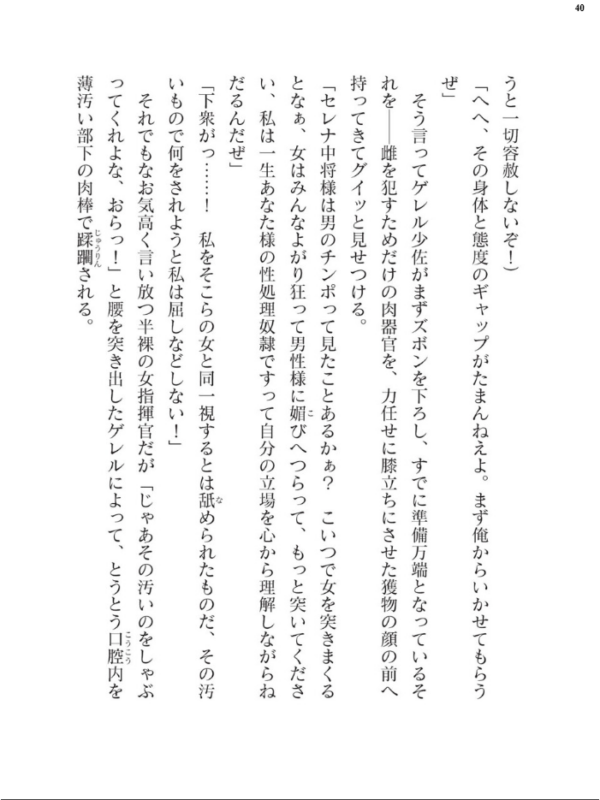 40
うと一切容赦しないぞ！）
「へへ、その身体と態度のギャップがたまんねえよ。まず俺からいかせてもらう
ぜ」
　そう言ってゲレル少佐がまずズボンを下ろし、すでに準備万端となっているそ
れを――雌を犯すためだけの肉器官を、力任せに膝立ちにさせた獲物の顔の前へ
持ってきてグイッと見せつける。
「セレナ中将様は男のチンポって見たことあるかぁ？　こいつで女を突きまくる
となぁ、女はみんなよがり狂って男性様に媚びへつらって、もっと突いてくださ
い、私は一生あなた様の性処理奴隷ですって自分の立場を心から理解しながらね
だるんだぜ」
「下衆がっ……！　私をそこらの女と同一視するとは舐められたものだ、その汚
いもので何をされようと私は屈しなどしない！」
　それでもなお気高く言い放つ半裸の女指揮官だが「じゃあその汚いのをしゃぶ
ってくれよな、おらっ！」と腰を突き出したゲレルによって、とうとう口腔内を
薄汚い部下の肉棒で蹂躙される。